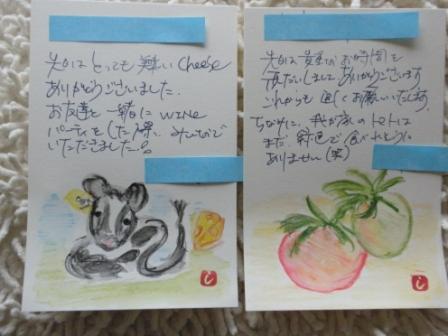 先日は とっても 美しい cheese
ありがとうございました.
お友達と 一緒に WINE
パーティをした際に みんなで
いただきました!
先日は 貴重な お時間を
頂だいしまして ありがとうございます
これからも 宜しく お願いいたします
ちなみに、我が家の トマトは
まだ 緑色で 食べれそうに
ありません(笑)